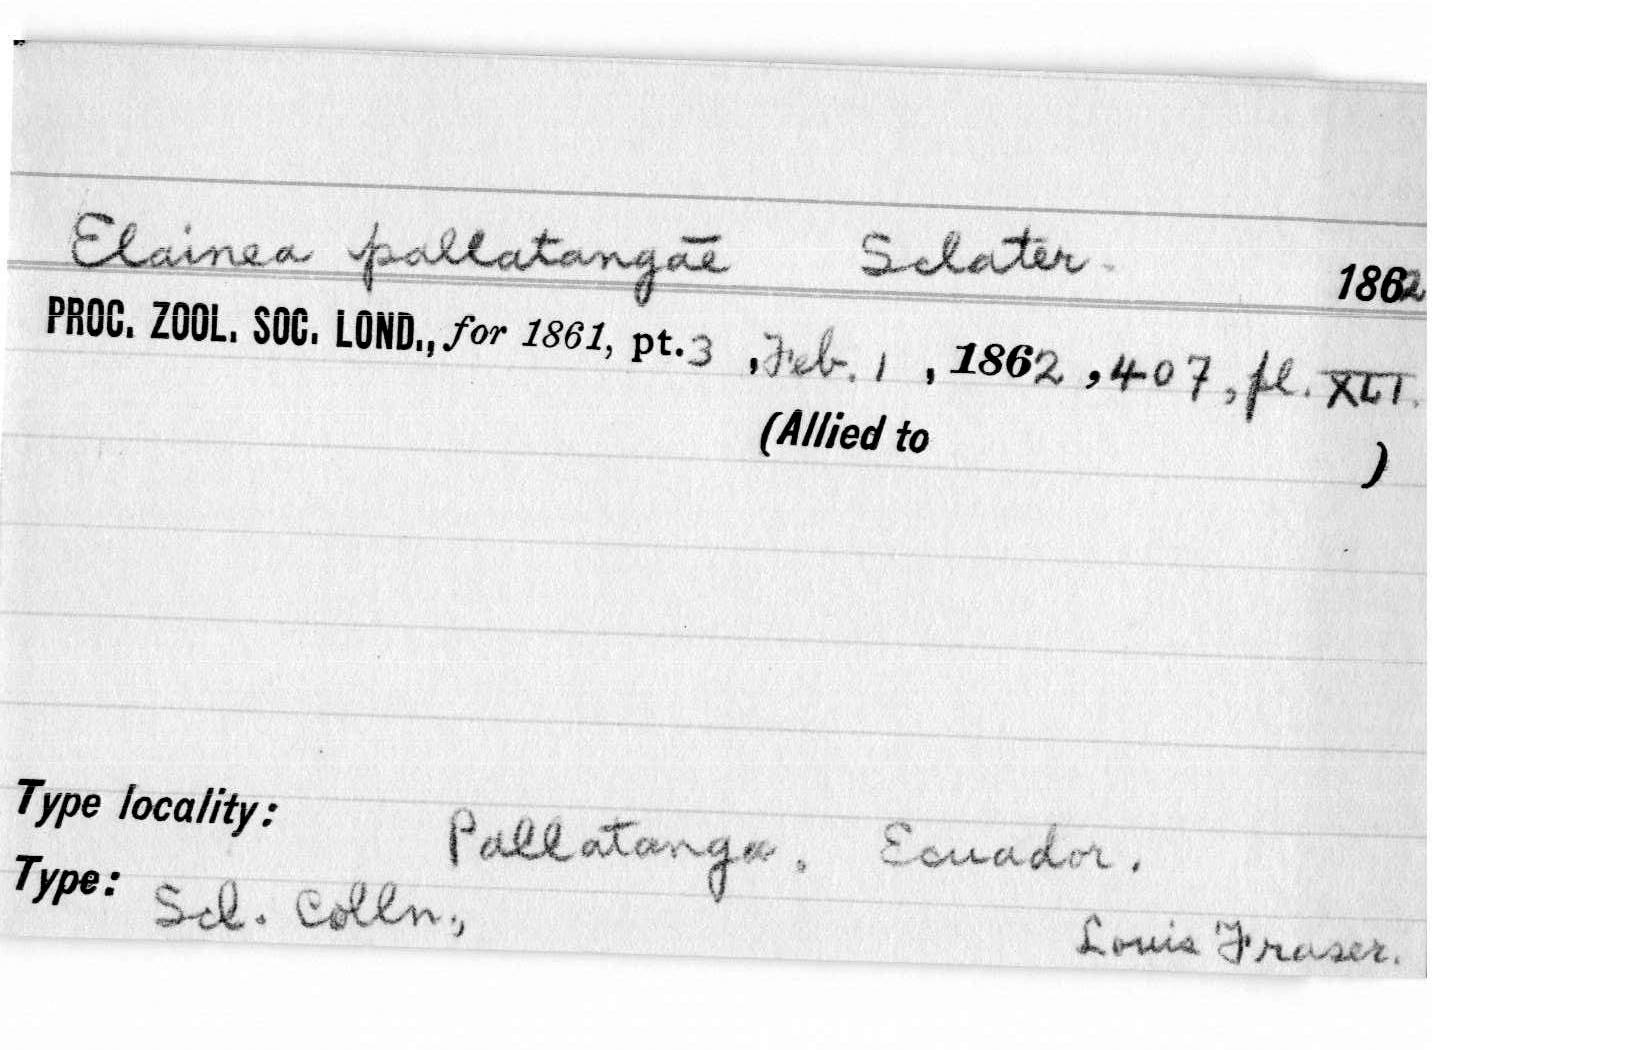 Elainea pallatangae Sclater. 1862
PROC. ZOOL. SOC. LOND., for 1861, pt. 3, Feb. 1, 1862, 407, pl. XLI.
(Allied to )
Type locality: Pallatanga, Ecuador.
Type: Scl. Colln., Louis Fraser.